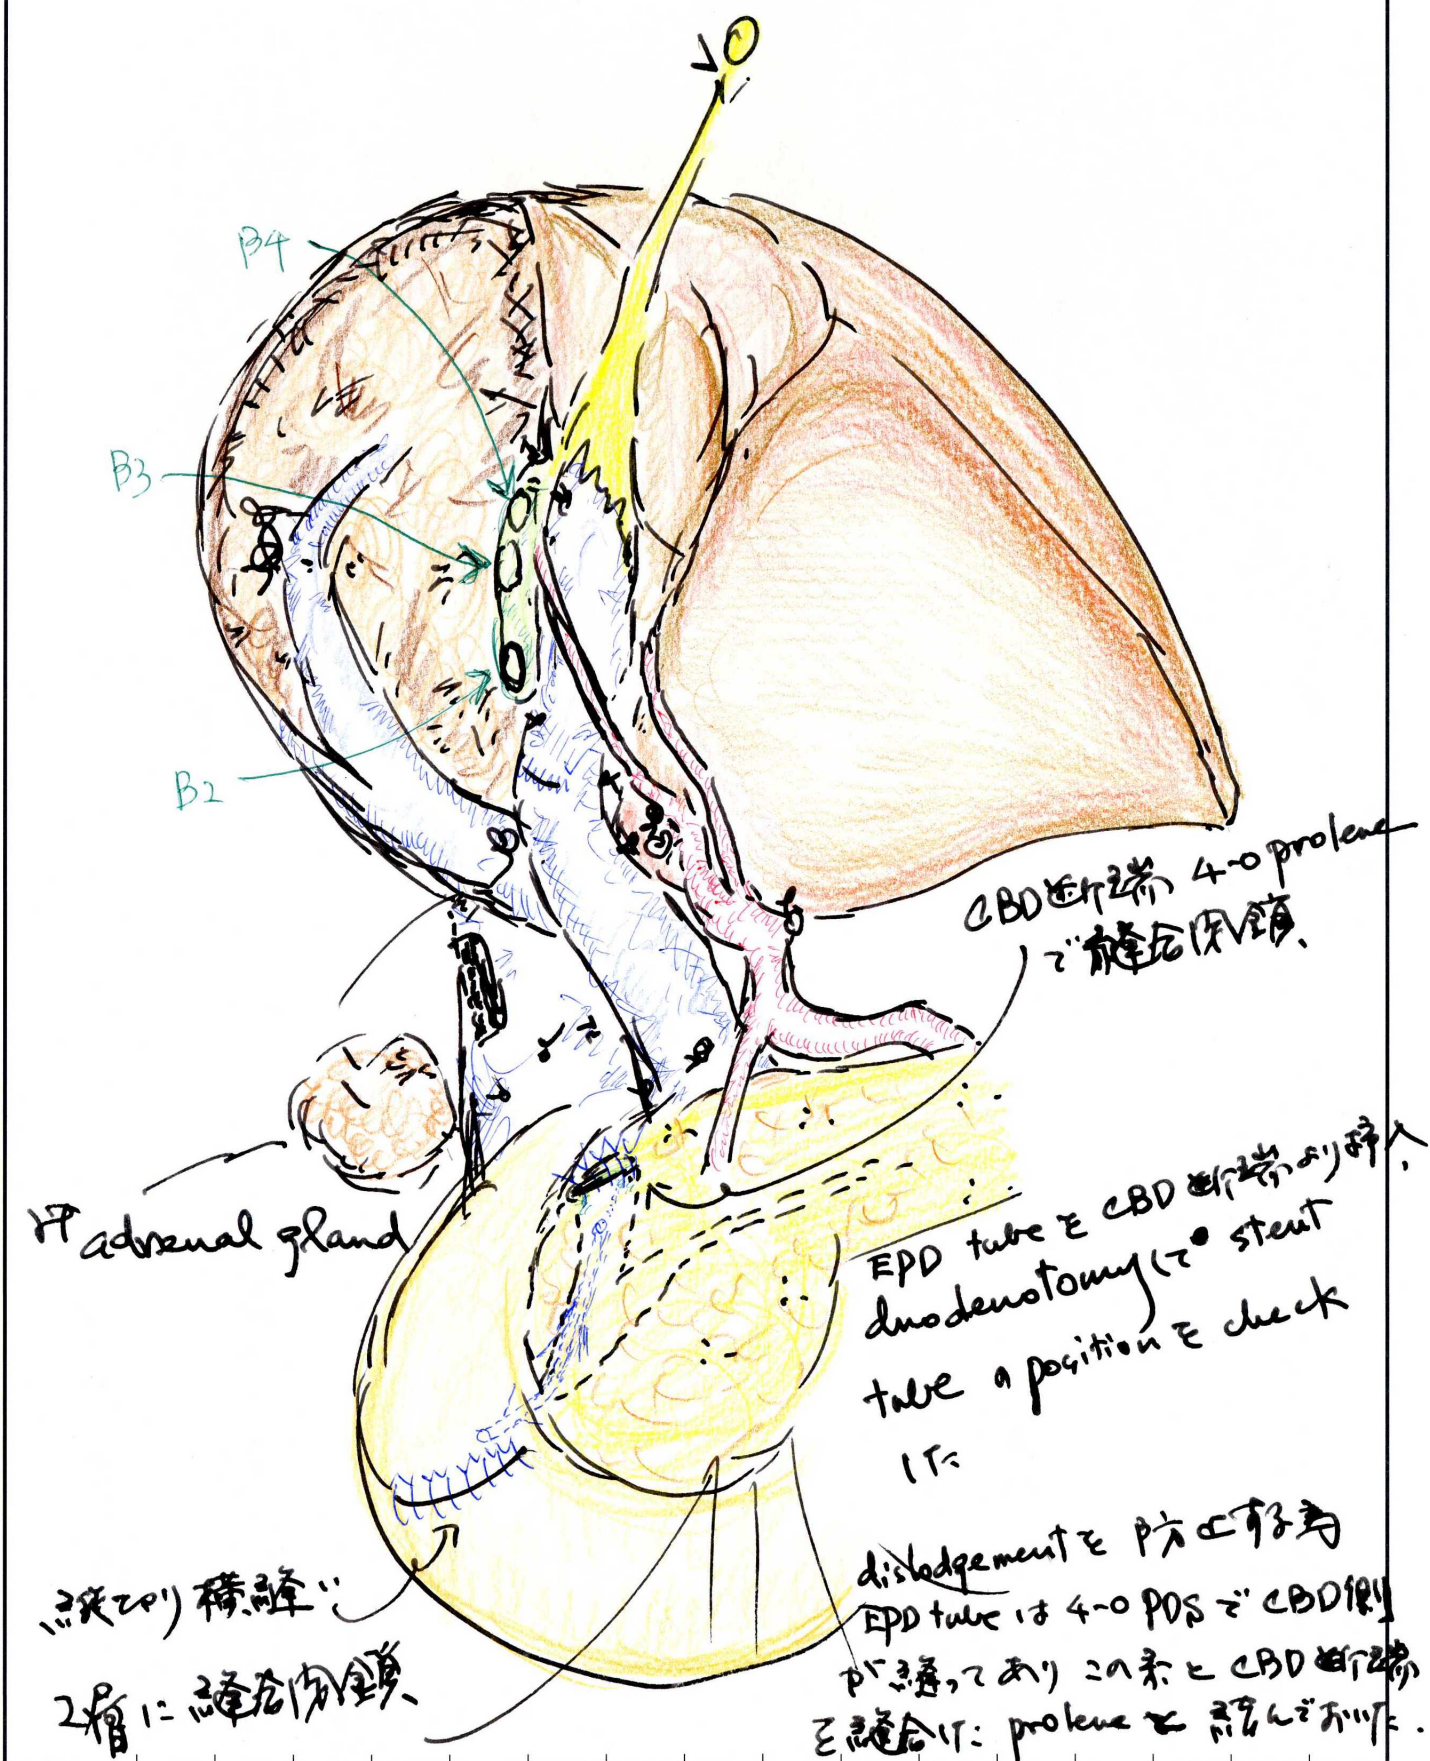 B4
B3
B2
CBD断端 4-0 prolene
で縫合閉鎖、
rt adrenal gland
EPD tube を CBD 断端より挿入、
duodenotomyにて stent
tube の position を check
した
縦切り横縫い
2層に縫合閉鎖、
dislodgementを防止する為
EPD tube は 4-0 PDS で CBD側
が縫ってあり この糸と CBD断端
を縫合した prolene と 結んでおいた.